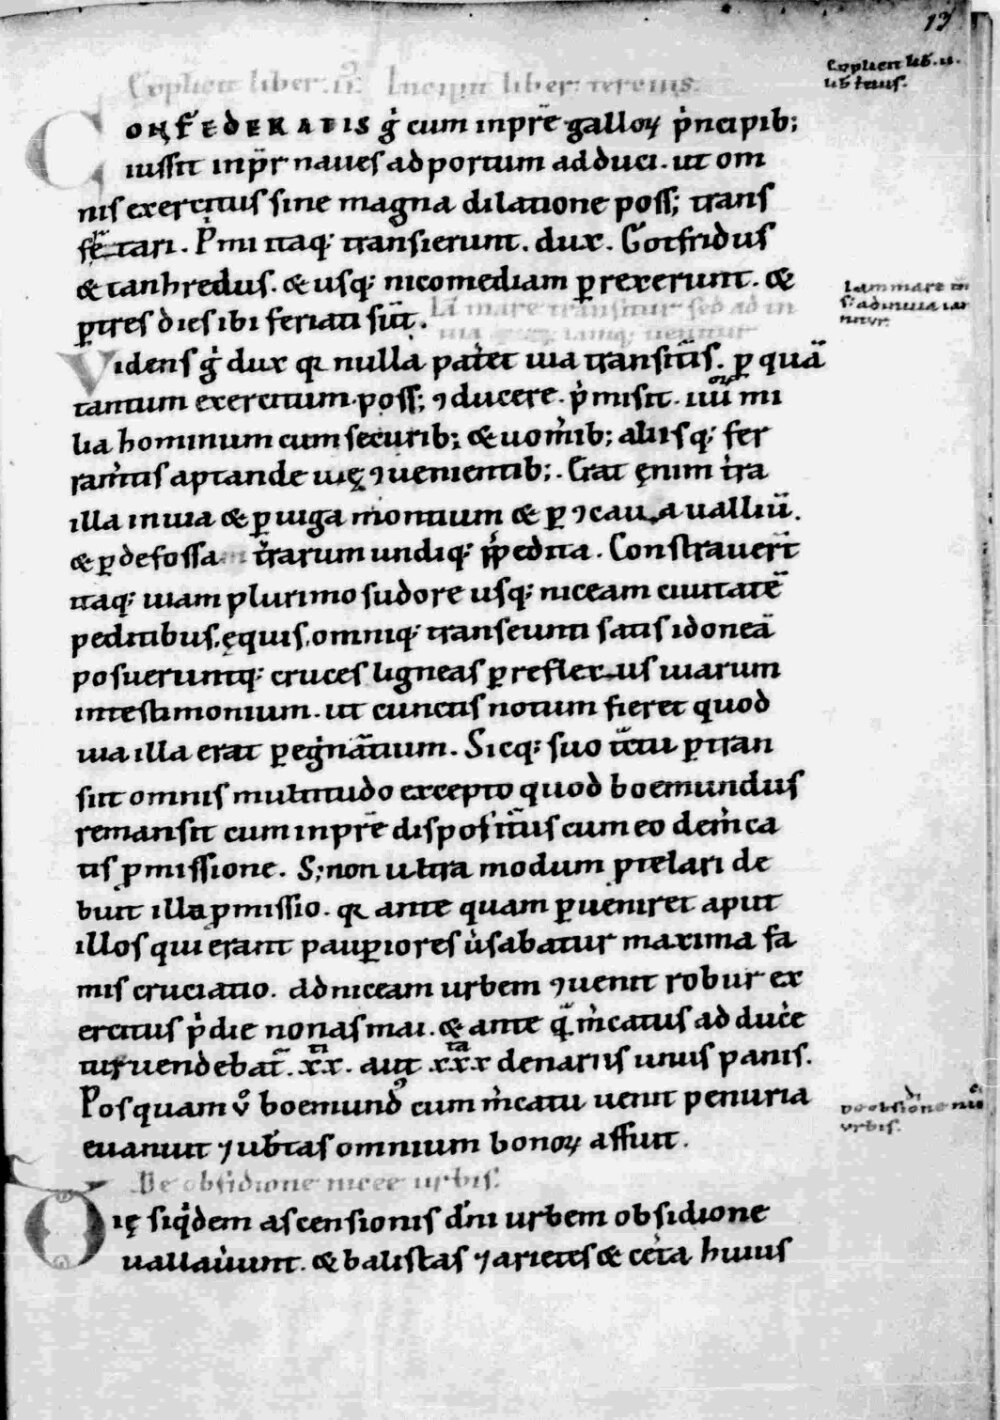 13
Explicit lib̄. ii.
lib̄ t̄cius.
Explicit liber .ii. Incipit liber tercius.
CONFEDERATIS g̊ cum inp̄re galloꝝ p̊ncipib;
iussit inp̄r naues ad portum adduci. ut om
nis exercitus sine magna dilatione poss; trans
fr̄etari. P̊mi itaq; transierunt. dux. Gotfridus
& tanhredus. & usq; nicomediam ꝑrexerunt. &
ꝑ tres dies ibi feriati sūt. Iā mare transitur sed ad in
Iam mare tn̄sit̄ ad inuia
Videns g̊ dux qꝛ nulla pat̊et uia transitus. ꝑ quā
tantum exercitum poss; ꝯducere. p̊misit .iiii. mi
lia hominum cum securib; & uom̊ib; aliisq; fer
ram̄tis aptande uię ꝯuenientib;. Erat ęnim t̊ra
illa inuia & ꝑ iuga montium & ꝑ ꝯcaua ualliū.
& ꝑ defossa t̊rarum undiq; īpedita. Constrauer̄t
itaq; uiam plurimo sudore usq; niceam ciuitatē
peditibus, ęquis, omniq; transeunti satis idoneā
posueruntq; cruces ligneas ꝑ reflexus uiarum
in testimonium. ut cunctis notum fieret quod
uia illa erat ꝑeg̊nātium. Sicq; suo t̄ctu ꝑtran
siit omnis multitudo excepto quod boemundus
remansit cum inp̄re dispositurus cum eo de m̊ca
tis ꝓmissione. S; non ultra modum prelari de
buit illa ꝓmissio. qꝛ ante quam ꝑueniret aput
illos qui erant pauꝑiores ůsabatur maxima fa
mis cruciatio. Ad niceam urbem ꝯuenit robur ex
ercitus p̊die nonas mai. & ante q̄ m̊catus ad duce̊
tur uendebat̄ .xx.ti aut .xxx.ta denariis unus panis.
Posquam ů boemundꝰ cum m̊catu uenit penuria
euanuit ⁊ ub̊tas omnium bonoꝝ affuit.
De obsidione nicee urbis.
De obsidione nicee
urbis.
Dię siq̊dem ascensionis dn̄i urbem obsidione
uallaůunt. & balistas ⁊ arietes & cet̊a huius